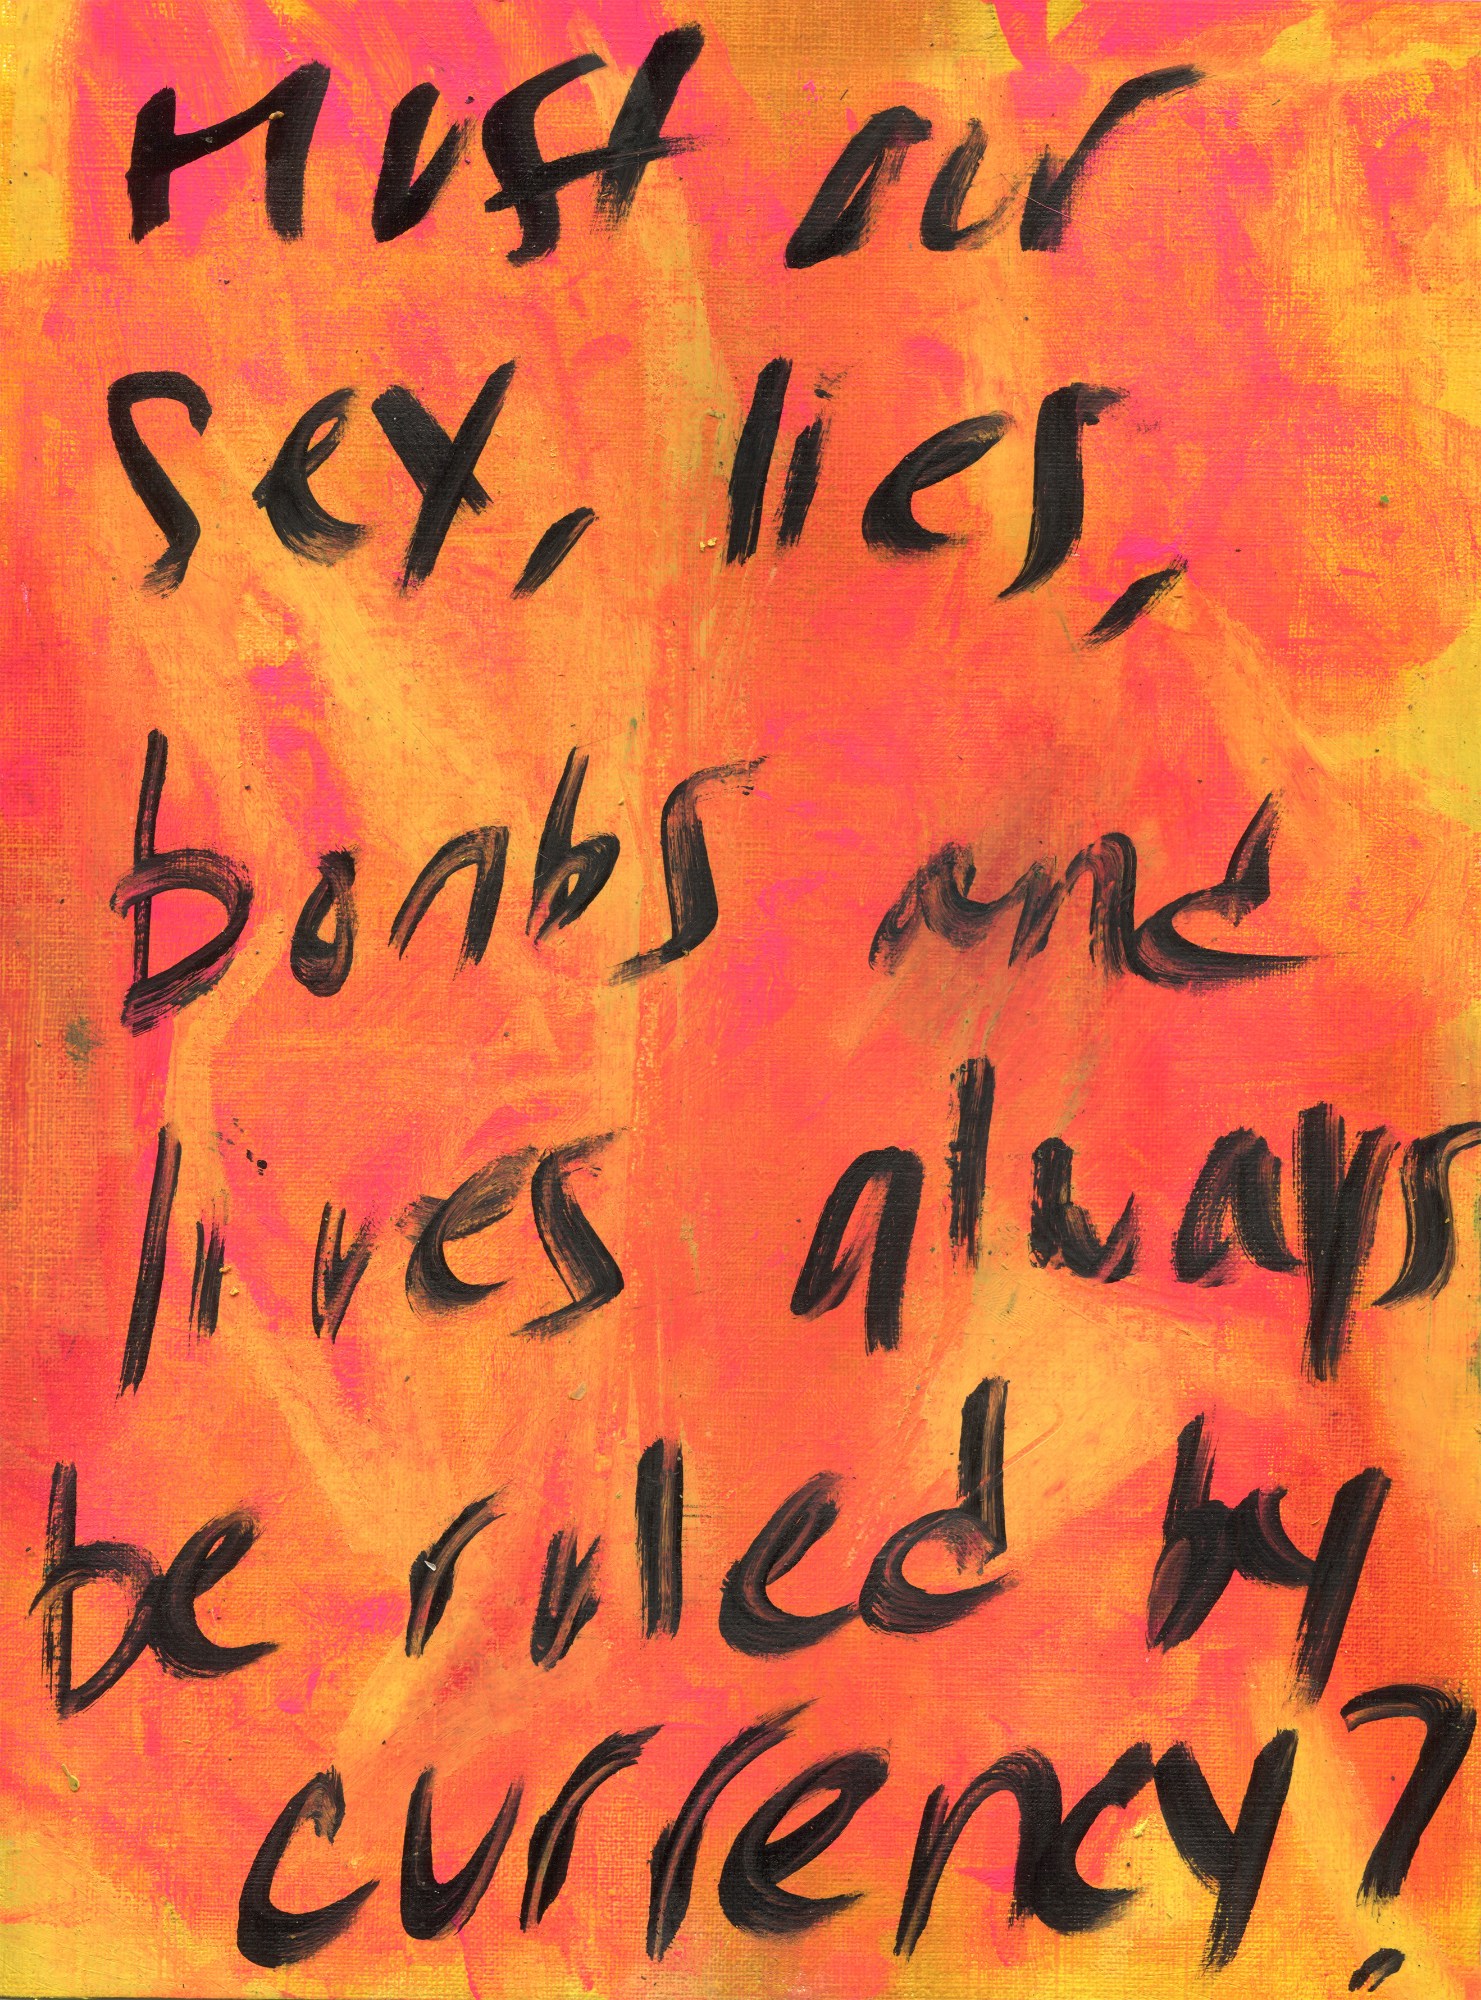 Must our
sex, lies,
bombs and
lives always
be ruled by
currency?